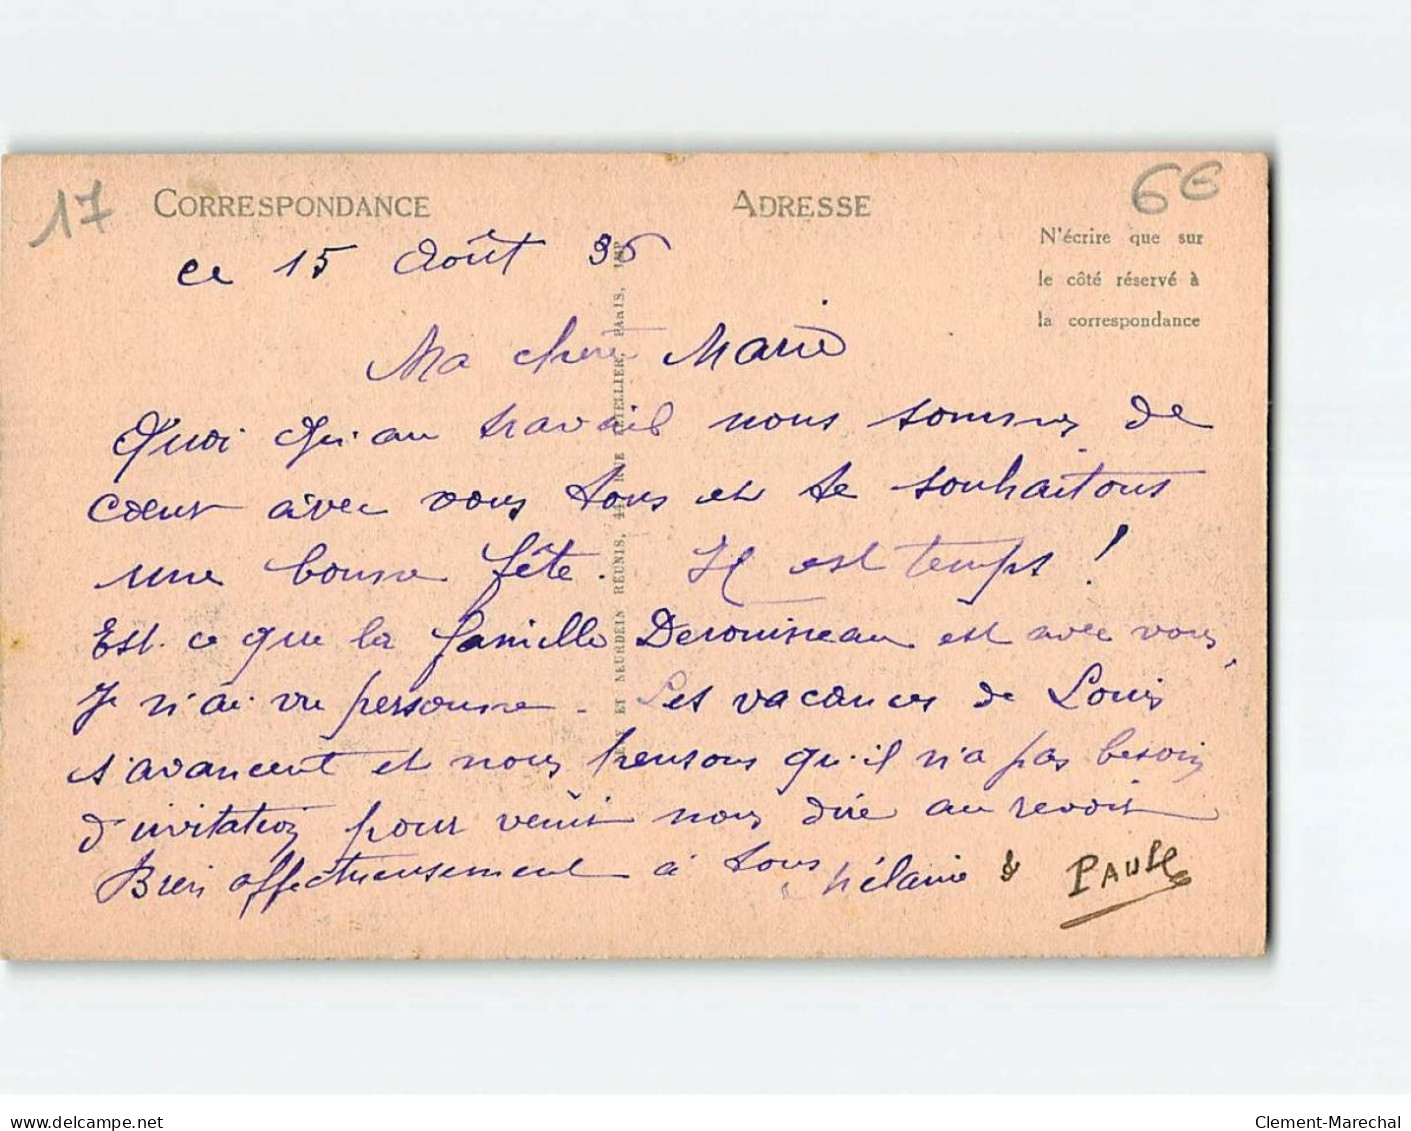 17
CORRESPONDANCE
ADRESSE
6€
N'écrire que sur
le côté réservé à
la correspondance
ce 15 Août 36
Ma chère Marie
Quoi qu'au travail nous sommes de
cœur avec vous tous et te souhaitons
une bonne fête. Il est temps !
Est-ce que la famille Derouineau est avec vous,
Je n'ai vu personne - Les vacances de Louis
s'avancent et nous pensons qu'il n'a pas besoin
d'invitation pour venir nous dire au revoir
Bien affectueusement à tous Mélanie & PAULE
ET NEURDEIN RÉUNIS, 44, RUE LETELLIER, PARIS, IMP
delcampe.net
Clement-Marechal